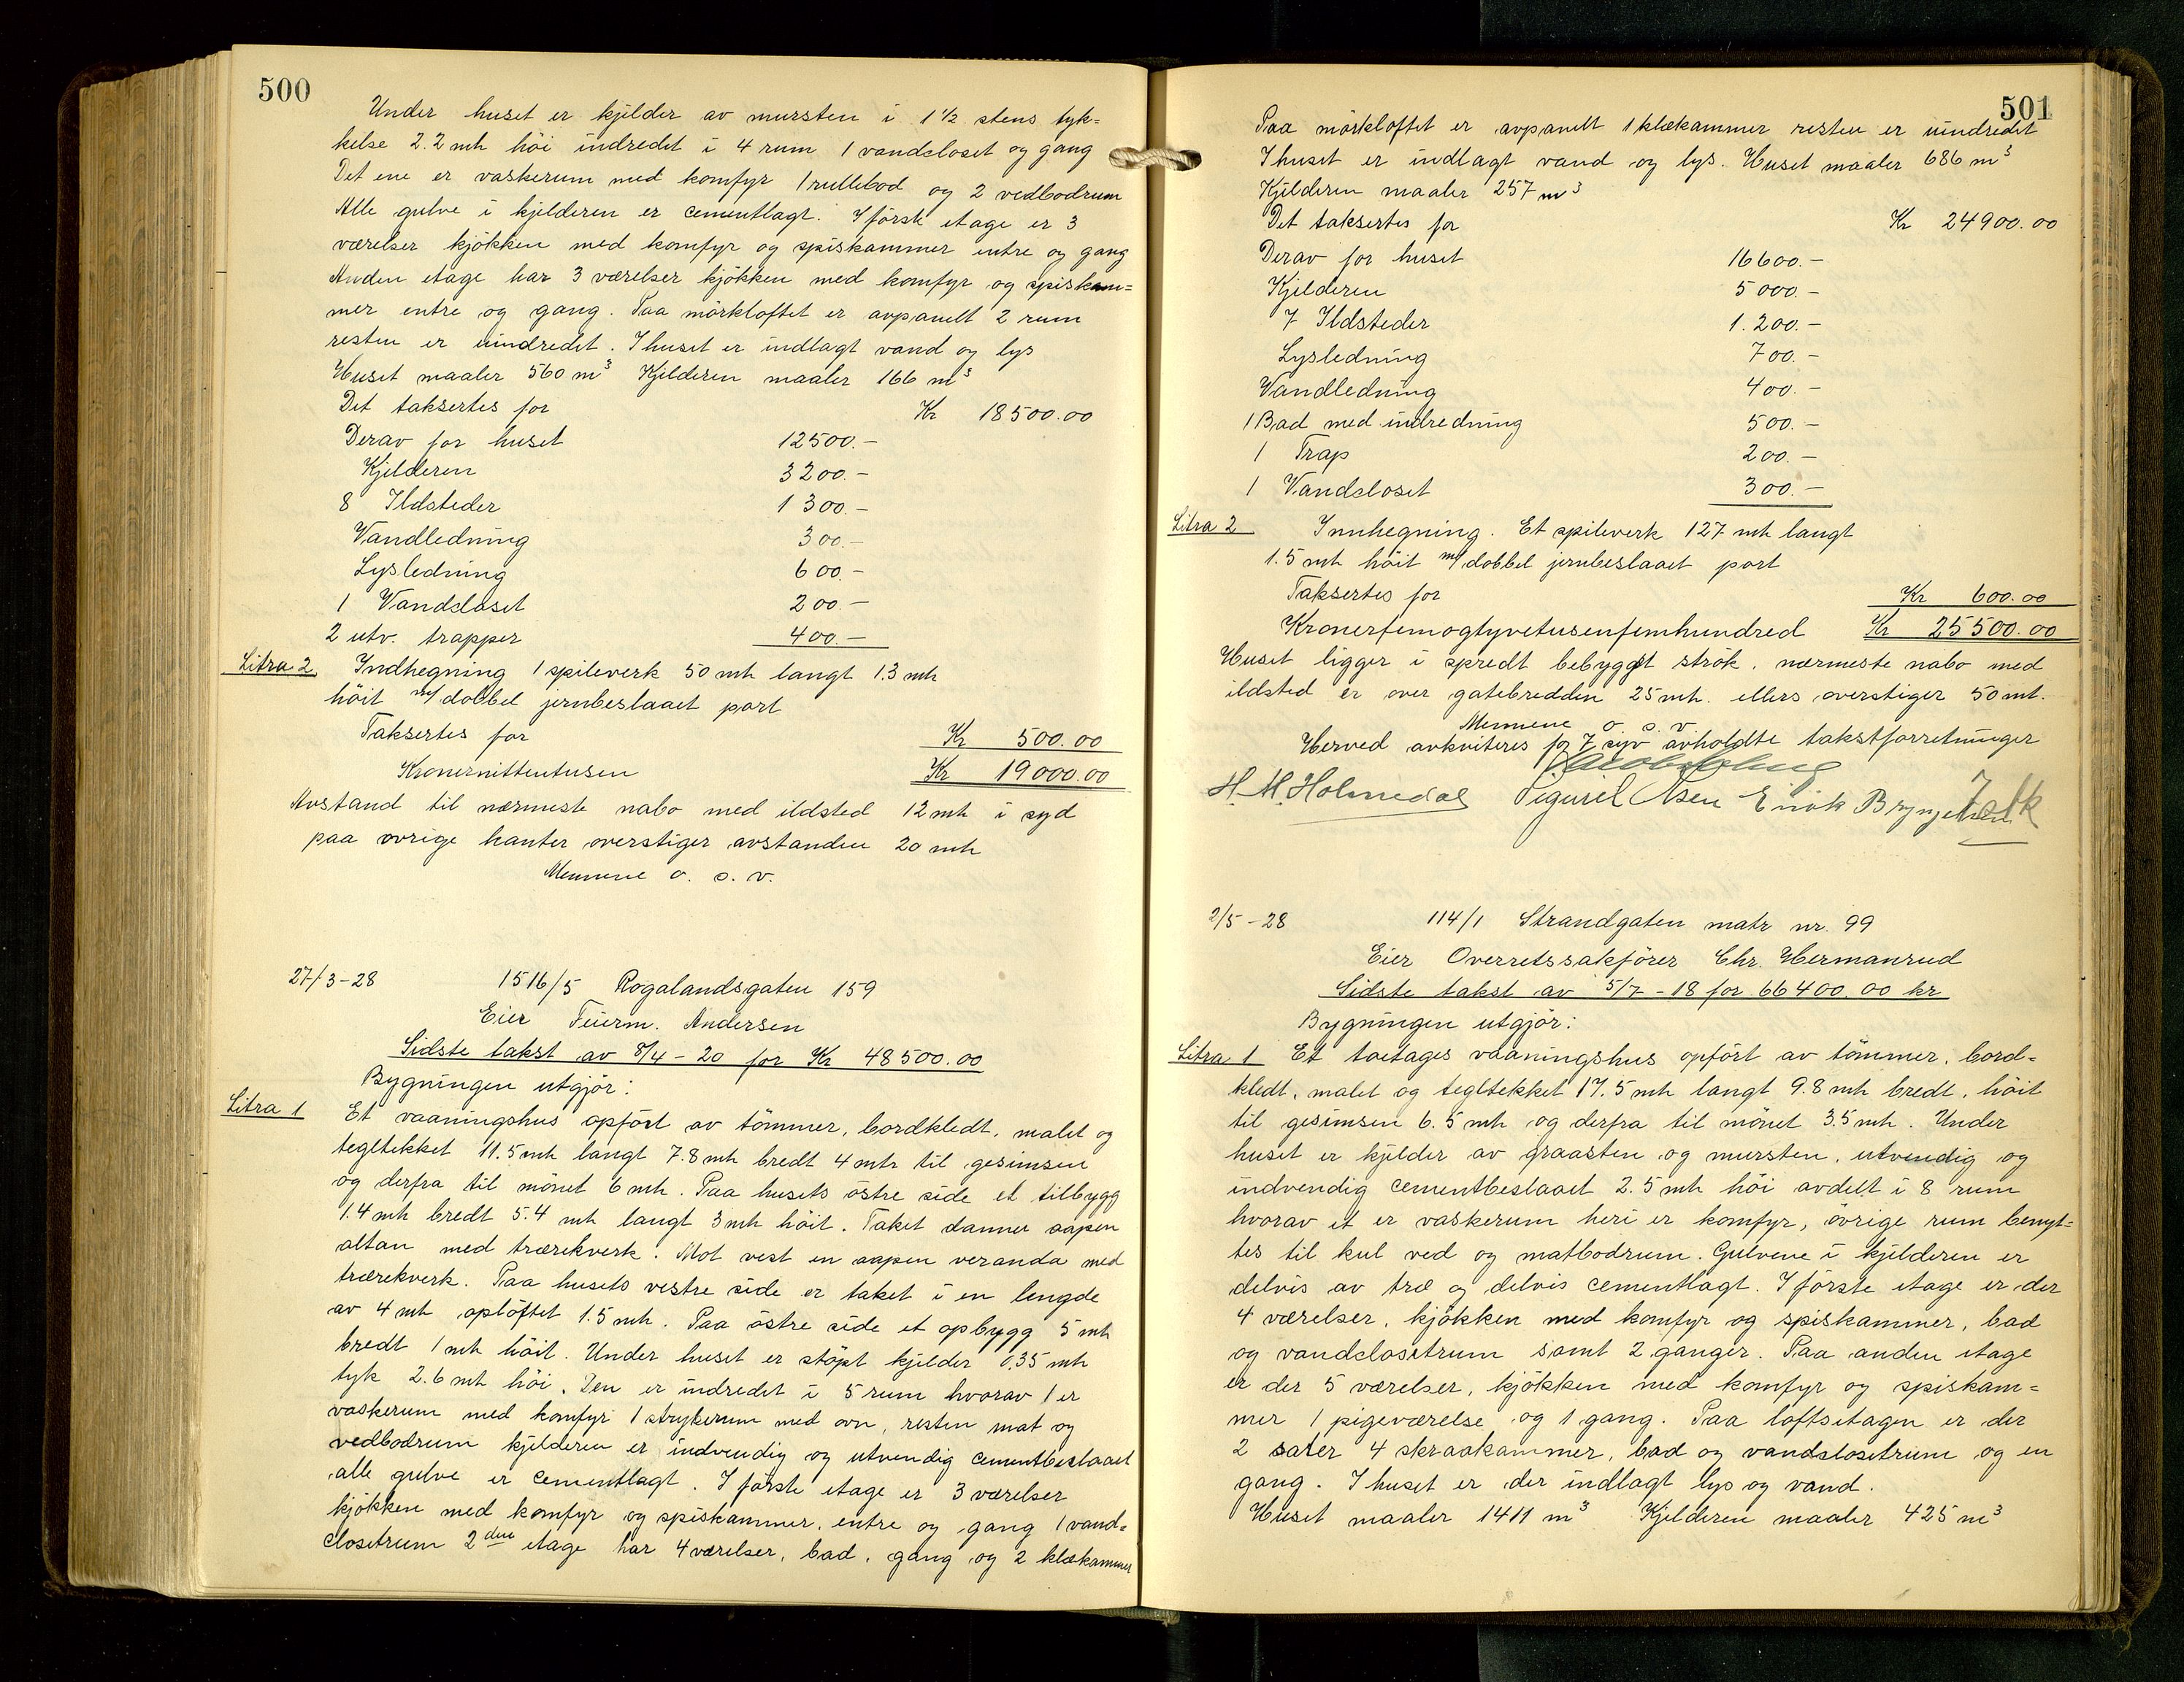 500
Under huset er kjelder av mursten i 1 1/2 stens tyk=
kelse 2.2 mtr höi indredet i 4 rum 1 vandcloset og gang
Det ene er vaskerum med komfyr 1 rullebod og 2 vedbodrum
Alle gulve i kjelderen er cementlagt. I förste etage er 3
værelser kjökken med komfyr og spiskammer entre og gang
Anden etage har 3 værelser kjökken med komfyr og spiskam=
mer entre og gang. Paa mörkloftet er avpanelt 2 rum
resten er uindredet. I huset er indlagt vand og lys
Huset maaler 560 m³ Kjelderen maaler 166 m³
Det taksertes for Kr 18500.00
Derav for huset 12500.-
Kjelderen 3200.-
8 Ildsteder 1300.-
Vandledning 300.-
Lysledning 600.-
1 Vandcloset 200.-
2 utv. trapper 400.-
Litra 2 Indhegning 1 spileverk 50 mtr langt 1.3 mtr
höit m/dobbel jernbeslaaet port
Taksertes for Kr 500.00
Kronernittentusen Kr 19000.00
Avstand til nærmeste nabo med ildsted 12 mtr i syd
paa övrige kanter overstiger avstanden 20 mtr
Mennene o. s. v.
27/3-28 1516/5 Rogalandsgaten 159
Eier Feierm. Andersen
Sidste takst av 8/4-20 for Kr 48500.00
Bygningen utgjör:
Litra 1 Et vaaningshus opfört av tömmer, bordkledt, malet og
tegltekket 11.5 mtr langt 7.8 mtr bredt 4 mtr til gesimsen
og derfra til mönet 6 mtr. Paa husets östre side et tilbygg
1.4 mtr bredt 5.4 mtr langt 3 mtr höit. Taket danner aapen
altan med trærekverk. Mot vest en aapen veranda med
trærekverk. Paa husets vestre side er taket i en lengde
av 4 mtr oplöftet 1.5 mtr. Paa östre side et opbygg 5 mtr
bredt 1 mtr höit. Under huset er stöpt kjelder 0.35 mtr
tyk 2.6 mtr höi. Den er indredet i 5 rum hvorav 1 er
vaskerum med komfyr 1 strykerum med ovn, resten mat og
vedbodrum kjelderen er indvendig og utvendig cementbeslaaet
alle gulve er cementlagt. I förste etage er 3 værelser
kjökken med komfyr og spiskammer, entre og gang 1 vand=
closetrum 2den etage har 4 værelser, bad, gang og 2 klækammer
501
Paa mörkloftet er avpanelt 1 klækammer resten er uindredet
I huset er indlagt vand og lys. Huset maaler 686 m³
Kjelderen maaler 257 m³
Det taksertes for Kr 24900.00
Derav for huset 16600.-
Kjelderen 5000.-
7 Ildsteder 1.200.-
Lysledning 700.-
Vandledning 400.-
1 Bad med indredning 500.-
1 Trap 200.-
1 Vandcloset 300.-
Litra 2 Innhegning. Et spileverk 127 mtr langt
1.5 mtr höit m/dobbel jernbeslaaet port
Taksertes for Kr 600.00
Kronerfemogtyvetusenfemhundred Kr 25500.00
Huset ligger i spredt bebygget strök, nærmeste nabo med
ildsted er over gatebredden 25 mtr. ellers overstiger 50 mt.
Mennene o. s. v.
Herved avkviteres for 7 syv avholdte takstforretninger
H. M. Holmedal Sigurd Olsen Enok Brynjelsen Falk
2/5-28 114/1 Strandgaten matr nr. 99
Eier Overretssakförer Chr. Hermanrud
Sidste takst av 5/7-18 for 66400.00 kr
Bygningen utgjör:
Litra 1 Et toetages vaaningshus opfört av tömmer, bord=
kledt, malet og tegltekket 17.5 mtr langt 9.8 mtr bredt, höit
til gesimsen 6.5 mtr og derfra til mönet 3.5 mtr. Under
huset er kjelder av graasten og mursten, utvendig og
indvendig cementbeslaaet 2.5 mtr höi avdelt i 8 rum
hvorav et er vaskerum heri er komfyr, övrige rum benyt=
tes til kul ved og matbodrum. Gulvene i kjelderen er
delvis av træ og delvis cementlagt. I förste etage er der
4 værelser, kjökken med komfyr og spiskammer, bad
og vandclosetrum samt 2 ganger. Paa anden etage
er der 5 værelser, kjökken med komfyr og spiskam=
mer 1 pigeværelse og 1 gang. Paa loftsetagen er der
2 saler 4 skraakammer, bad og vandslosetrum og en
gang. I huset er der indlagt lys og vand.
Huset maaler 1411 m³ Kjelderen maaler 425 m³